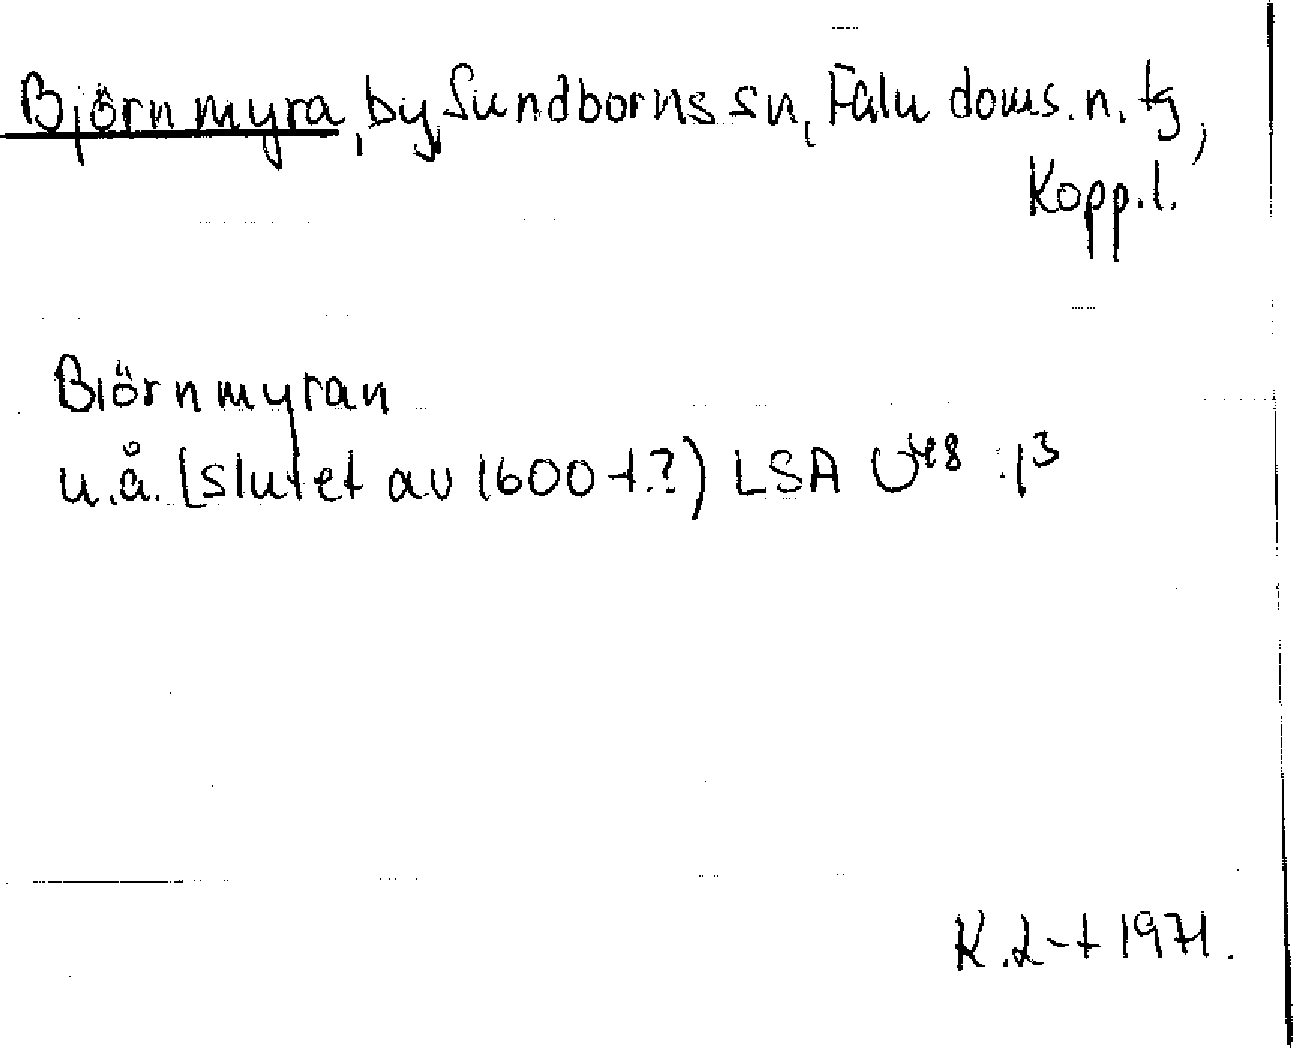 Björnmyra, by, Sundborns sn, Falu doms. n. tg,
Kopp. l.
Biörnmyran
u.å. (slutet av 1600-t.?) LSA U48 :1³
K. L-t 1971.